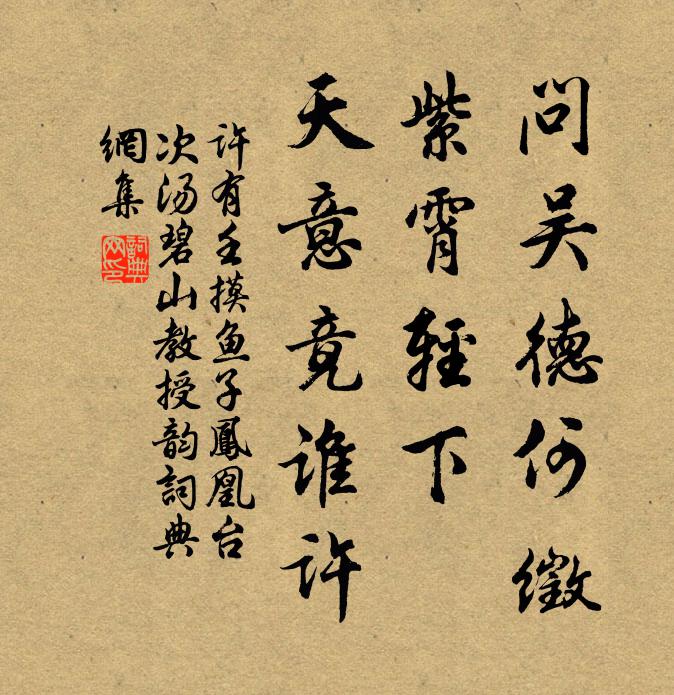 问吴德何徵
紫霄轻下
天意竟谁许
许有壬摸鱼子鳳凰台
次汤碧山教授韵詞典
網集
詞典網印